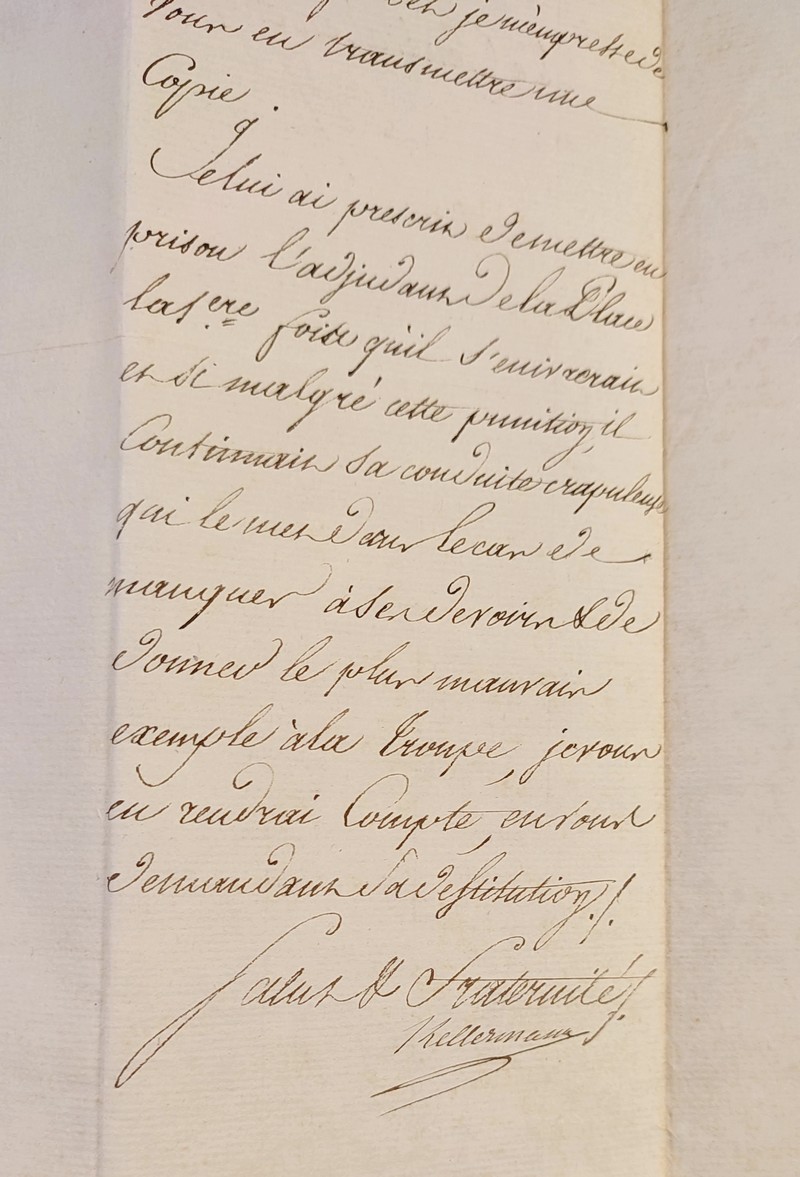 et je m'empresse de
vous en transmettre une
Copie.
Je lui ai prescrit de mettre en
prison l'adjudant de la Place
la 1.ere fois qu'il s'enivrerait
et si malgré cette punition, il
Continuait sa conduite crapuleuse
qui le met dans le cas de
manquer à ses devoirs & de
donner le plus mauvais
exemple à la troupe, je vous
en rendrai Compte, en vous
demandant sa destitution./.
Salut & Fraternité/.
Kellermann